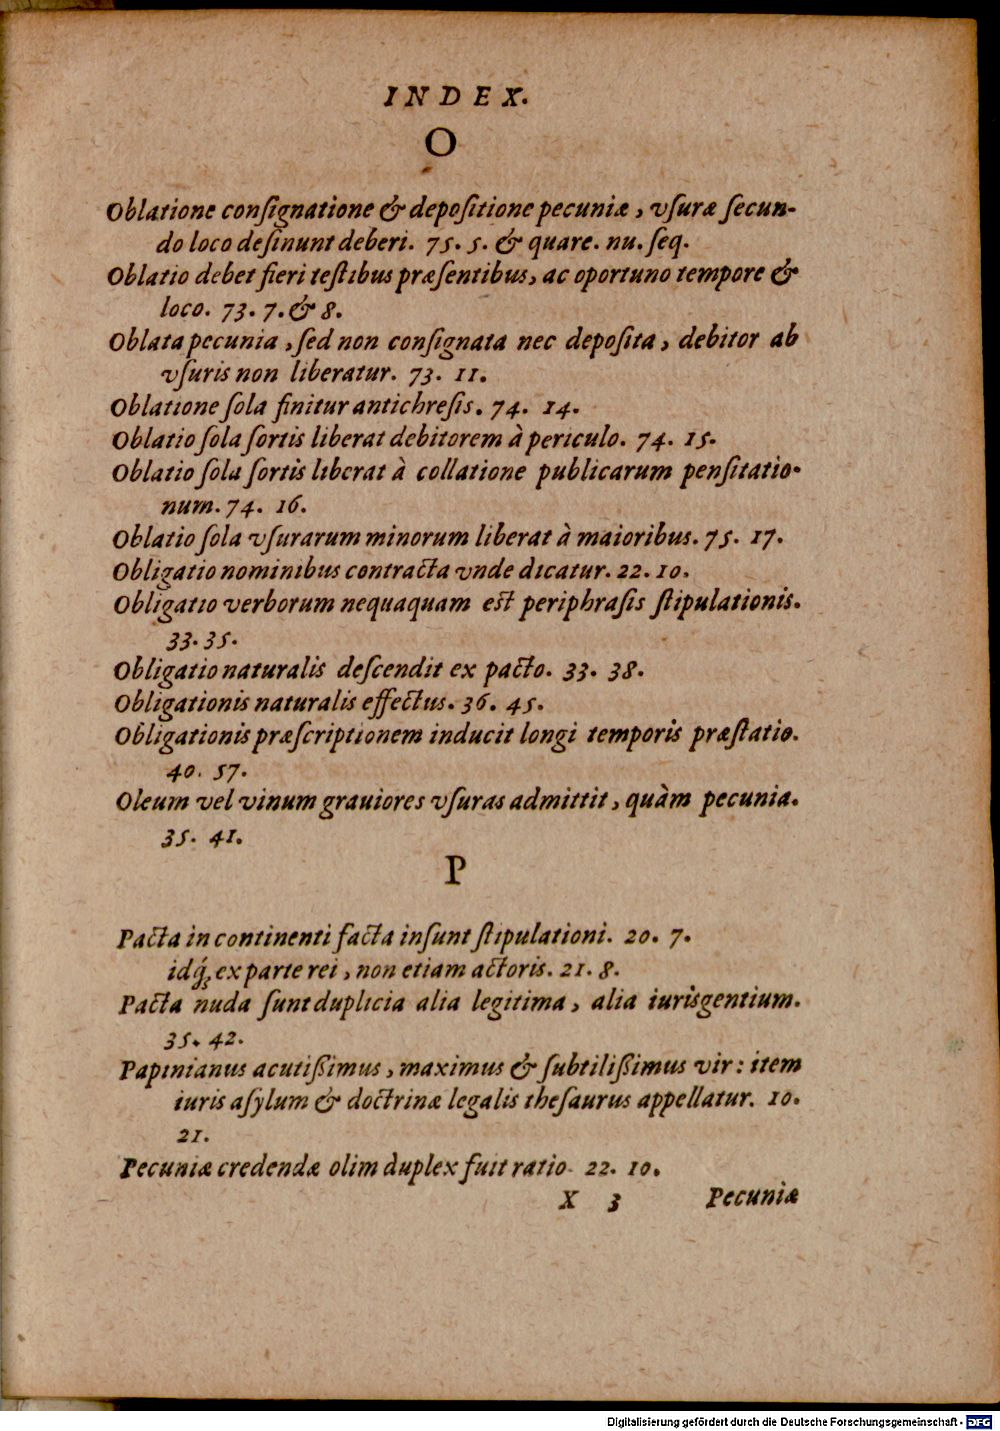 INDEX.
O
Oblatione conſignatione & depoſitione pecuniæ, vſuræ ſecun-
do loco deſinunt deberi. 75. 5. & quare. nu. ſeq.
Oblatio debet fieri teſtibus præſentibus, ac oportuno tempore &
loco. 73. 7. & 8.
Oblata pecunia, ſed non conſignata nec depoſita, debitor ab
vſuris non liberatur. 73. 11.
Oblatione ſola finitur antichreſis. 74. 14.
Oblatio ſola ſortis liberat debitorem à periculo. 74. 15.
Oblatio ſola ſortis liberat à collatione publicarum penſitatio-
num. 74. 16.
Oblatio ſola vſurarum minorum liberat à maioribus. 75. 17.
Obligatio nominibus contracta vnde dicatur. 22. 10.
Obligatio verborum nequaquam eſt periphraſis ſtipulationis.
33. 35.
Obligatio naturalis deſcendit ex pacto. 33. 38.
Obligationis naturalis effectus. 36. 45.
Obligationis præſcriptionem inducit longi temporis præſtatio.
40. 57.
Oleum vel vinum grauiores vſuras admittit, quàm pecunia.
35. 41.
P
Pacta in continenti facta inſunt ſtipulationi. 20. 7.
idq́; ex parte rei, non etiam actoris. 21. 8.
Pacta nuda ſunt duplicia alia legitima, alia iurisgentium.
35. 42.
Papinianus acutiſſimus, maximus & ſubtiliſſimus vir: item
iuris aſylum & doctrinæ legalis theſaurus appellatur. 10.
21.
Pecuniæ credendæ olim duplex fuit ratio. 22. 10.
X 3 Pecuniæ
Digitalisierung gefördert durch die Deutsche Forschungsgemeinschaft - DFG